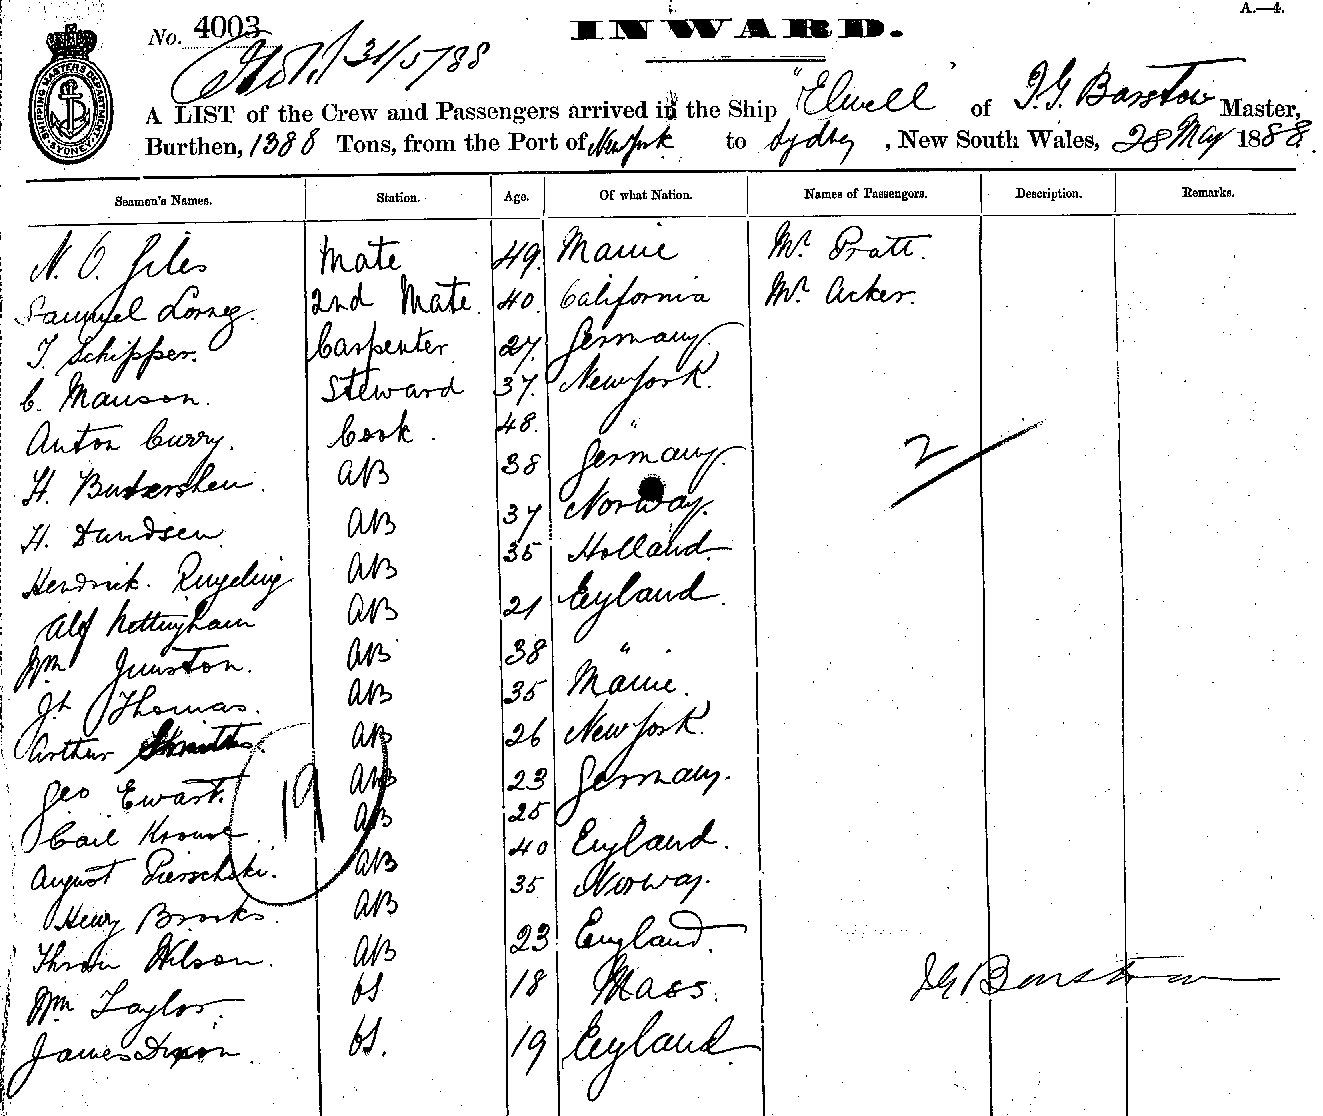 A.—4.
No. 4003
INWARD.
31/5/88
SHIPPING MASTER'S DEPARTMENT SYDNEY
A LIST of the Crew and Passengers arrived in the Ship "Elwell" of J. G. Barstow Master,
Burthen, 1388 Tons, from the Port of New York to Sydney, New South Wales, 28 May 1888.
Seamen's Names. Station. Age. Of what Nation. Names of Passengers. Description. Remarks.
N. O. Giles Mate 49. Maine Mr. Pratt.
Samuel 2nd Mate. 40. California Mr. Acker.
T. Schipper. Carpenter 27. Germany
C. Manson. Steward 37. New York.
Anton Curry. Cook. 48. "
H. AB 38 Germany.
2
H. AB 37 Norway.
Hendrick. AB 35 Holland
Alf Nottingham AB 21 England.
Wm AB 38 "
Jh Thomas. AB 35 Maine.
Arthur AB 26 New York.
Geo Ewart. AB 23 Germany.
19
AB 25
August AB 40 England.
Henry Brooks. AB 35 Norway.
Wilson. AB 23 England.
Wm Taylor. OS 18 Mass.
J G Barstow
James Dixon. OS. 19 England